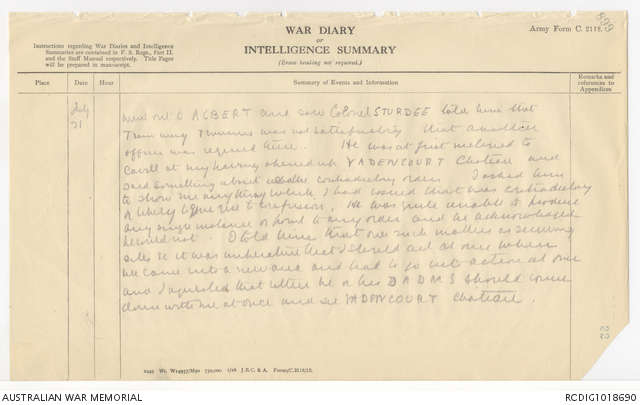 WAR DIARY
or
INTELLIGENCE SUMMARY
(Erase heading not required.)
Army Form C. 2118.
Instructions regarding War Diaries and Intelligence
Summaries are contained in F. S. Regs., Part II.
and the Staff Manual respectively. Title Pages
will be prepared in manuscript.
Place
Date
Hour
Summary of Events and Information
Remarks and
references to
Appendices
July
21
went into ALBERT and saw Colonel STURDGE told him that
was not satisfactory that another
officer was required there. He was at first inclined to
cavil at my having opened up VADENCOURT Chateau and
said something about contradictory orders I asked him
to show me anything which I had issued that was contradictory
or likely to give rise to confusion. He was quite unable to produce
any single instance or point to any order and he acknowledged
he could not. I told him that over such matters as securing
sites &c it was imperative that I should act at once when
we came into a new area and had to go into action at once
and I requested that either he or his DADMS should come
down with me at once and see VADENCOURT Chateau.
AUSTRALIAN WAR MEMORIAL
RCDIG1018690